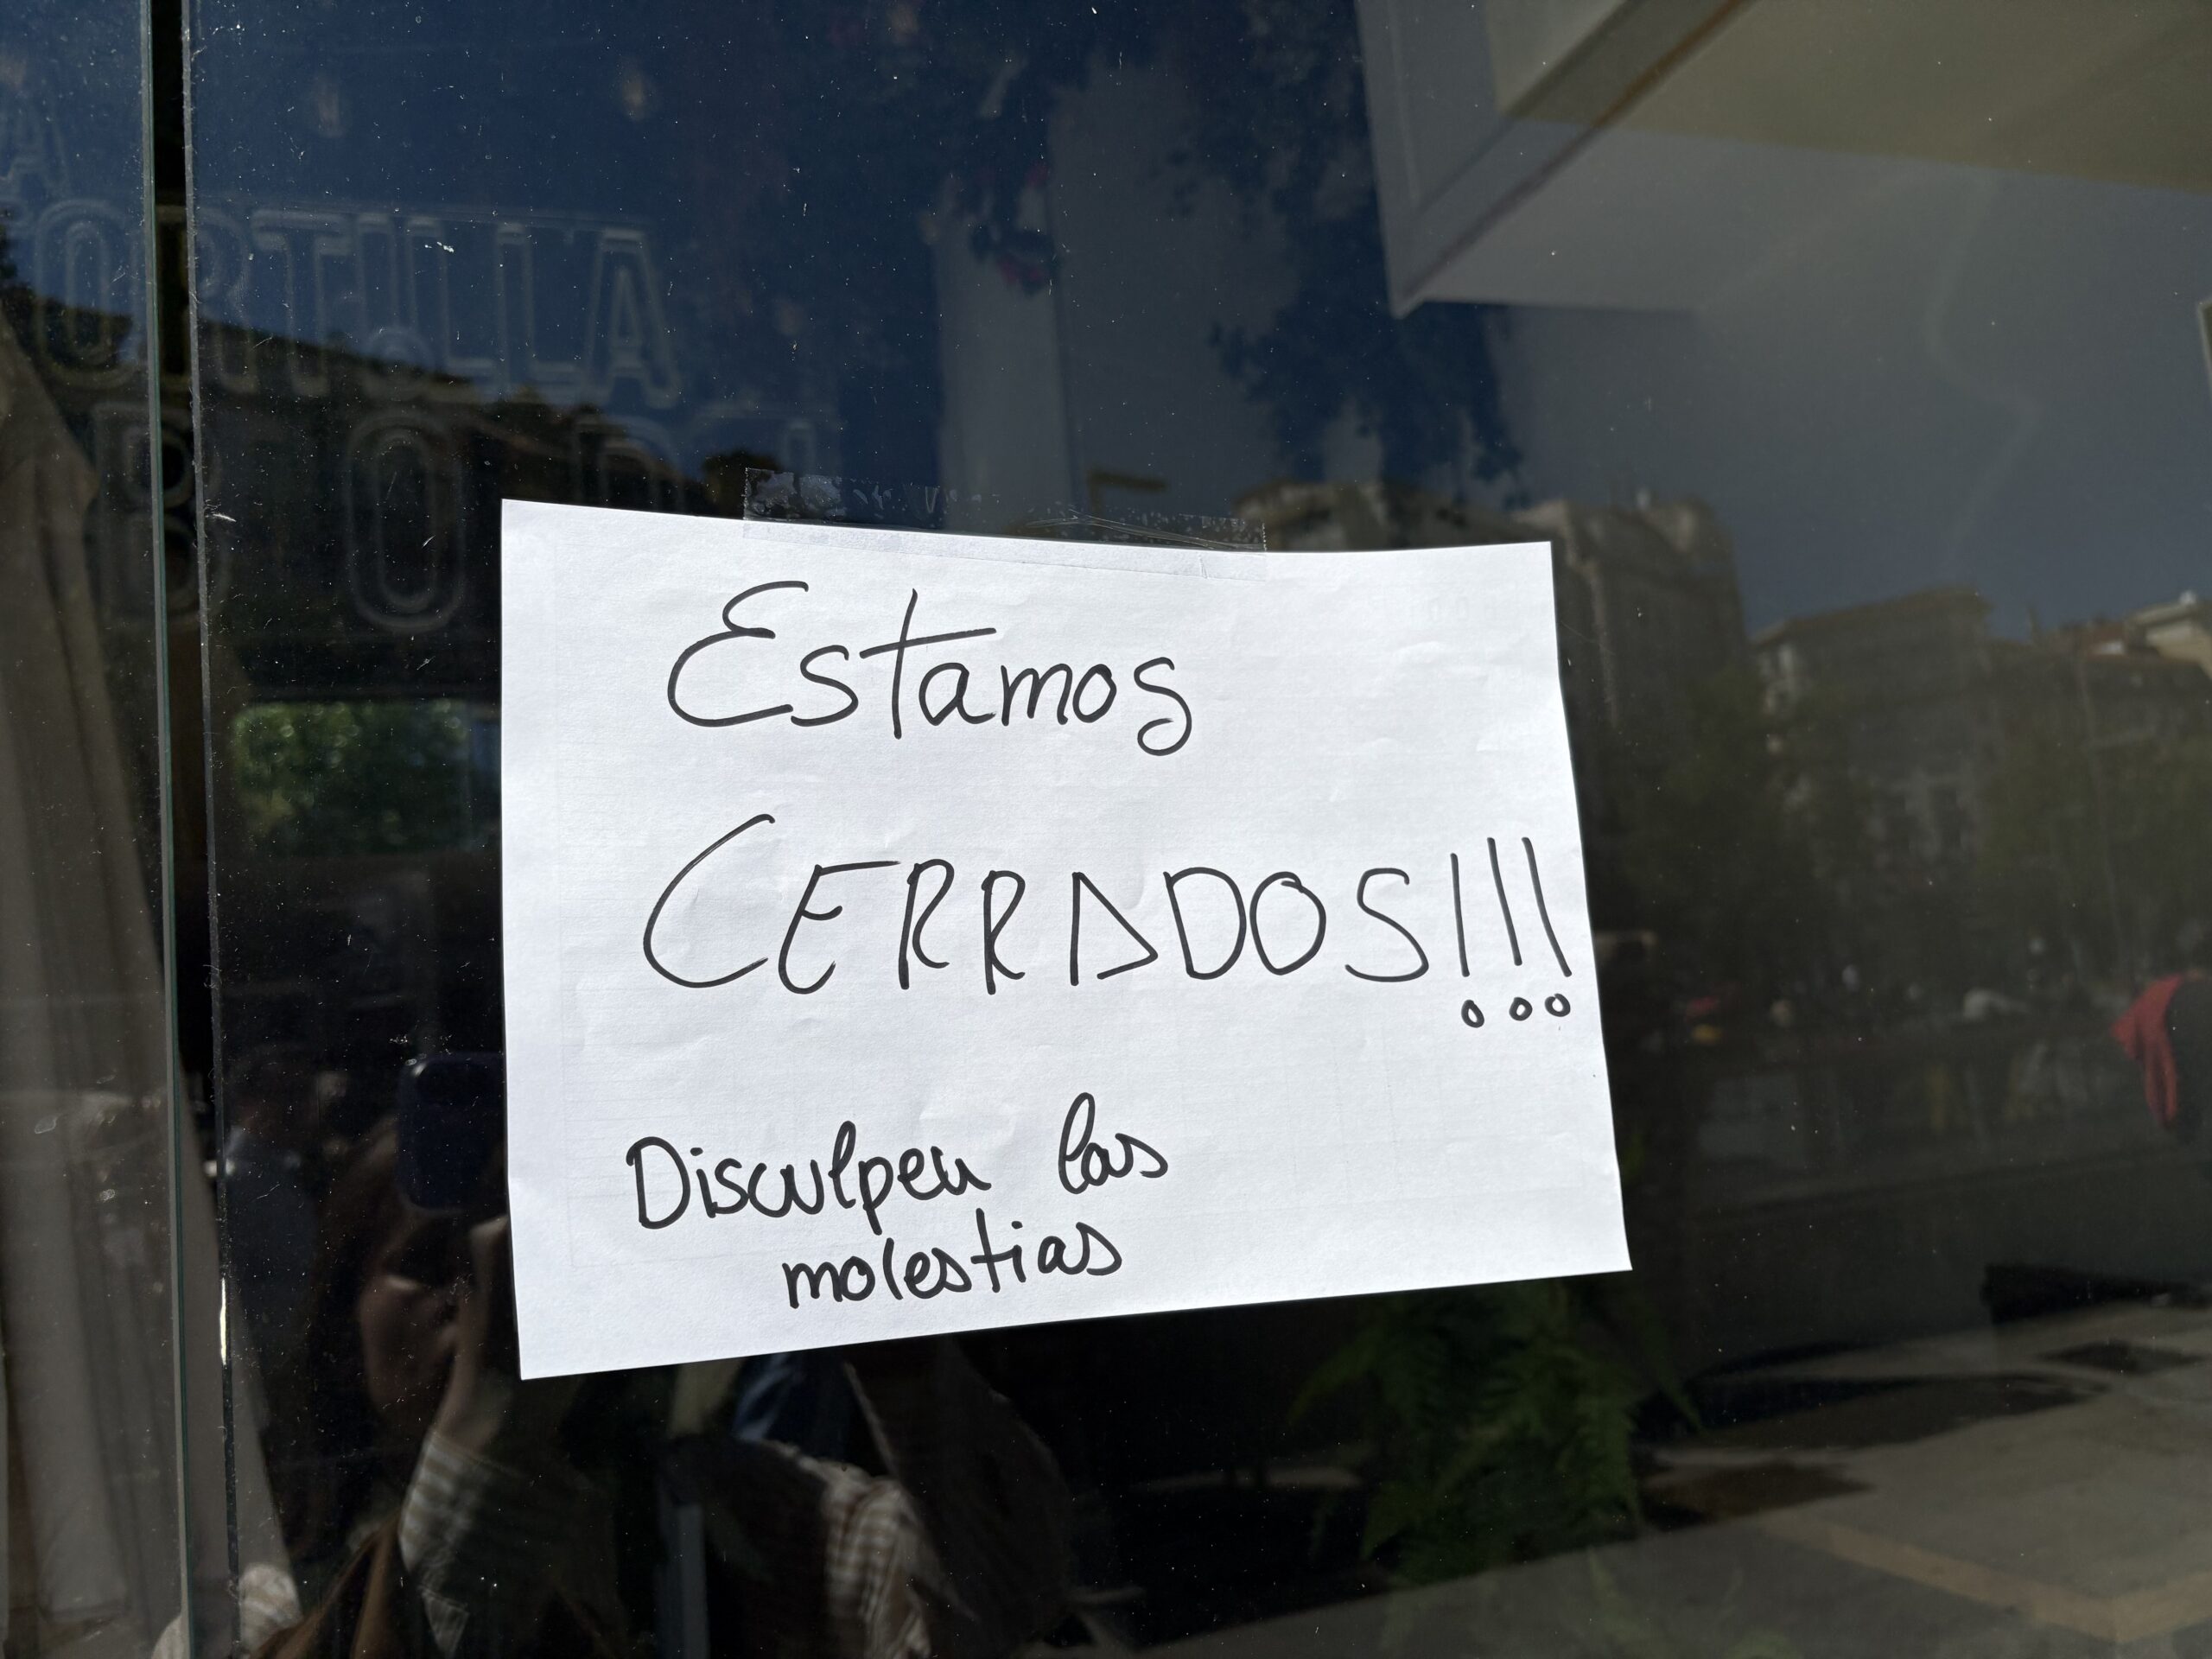 TORTILLA
Estamos
CERRADOS!!!
Disculpen las
molestias